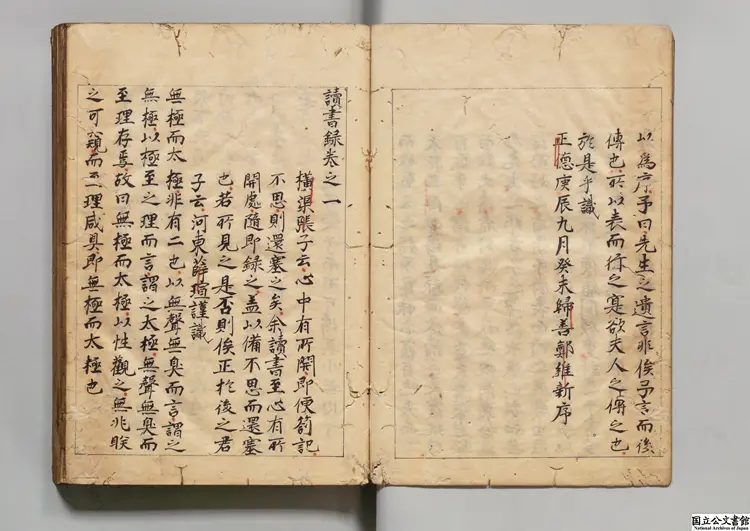 以為序予曰先生之遺言非俟予言而後
傳也所以表而行之寔欲夫人之傳之也
於是乎識
正德庚辰九月癸未歸善鄭維新序
讀書錄卷之一
橫渠張子云心中有所開即便箚記
不思則還塞之矣余讀書至心有所
開處隨即録之盖以備不思而還塞
也若所見之是否則俟正於後之君
子云河東薛瑄謹識
無極而太極非有二也以無聲無臭而言謂之
無極以極至之理而言謂之太極無聲無臭而
至理存焉故曰無極而太極以性觀之無兆眹
之可窺而至理咸具即無極而太極也
国立公文書館
National Archives of Japan